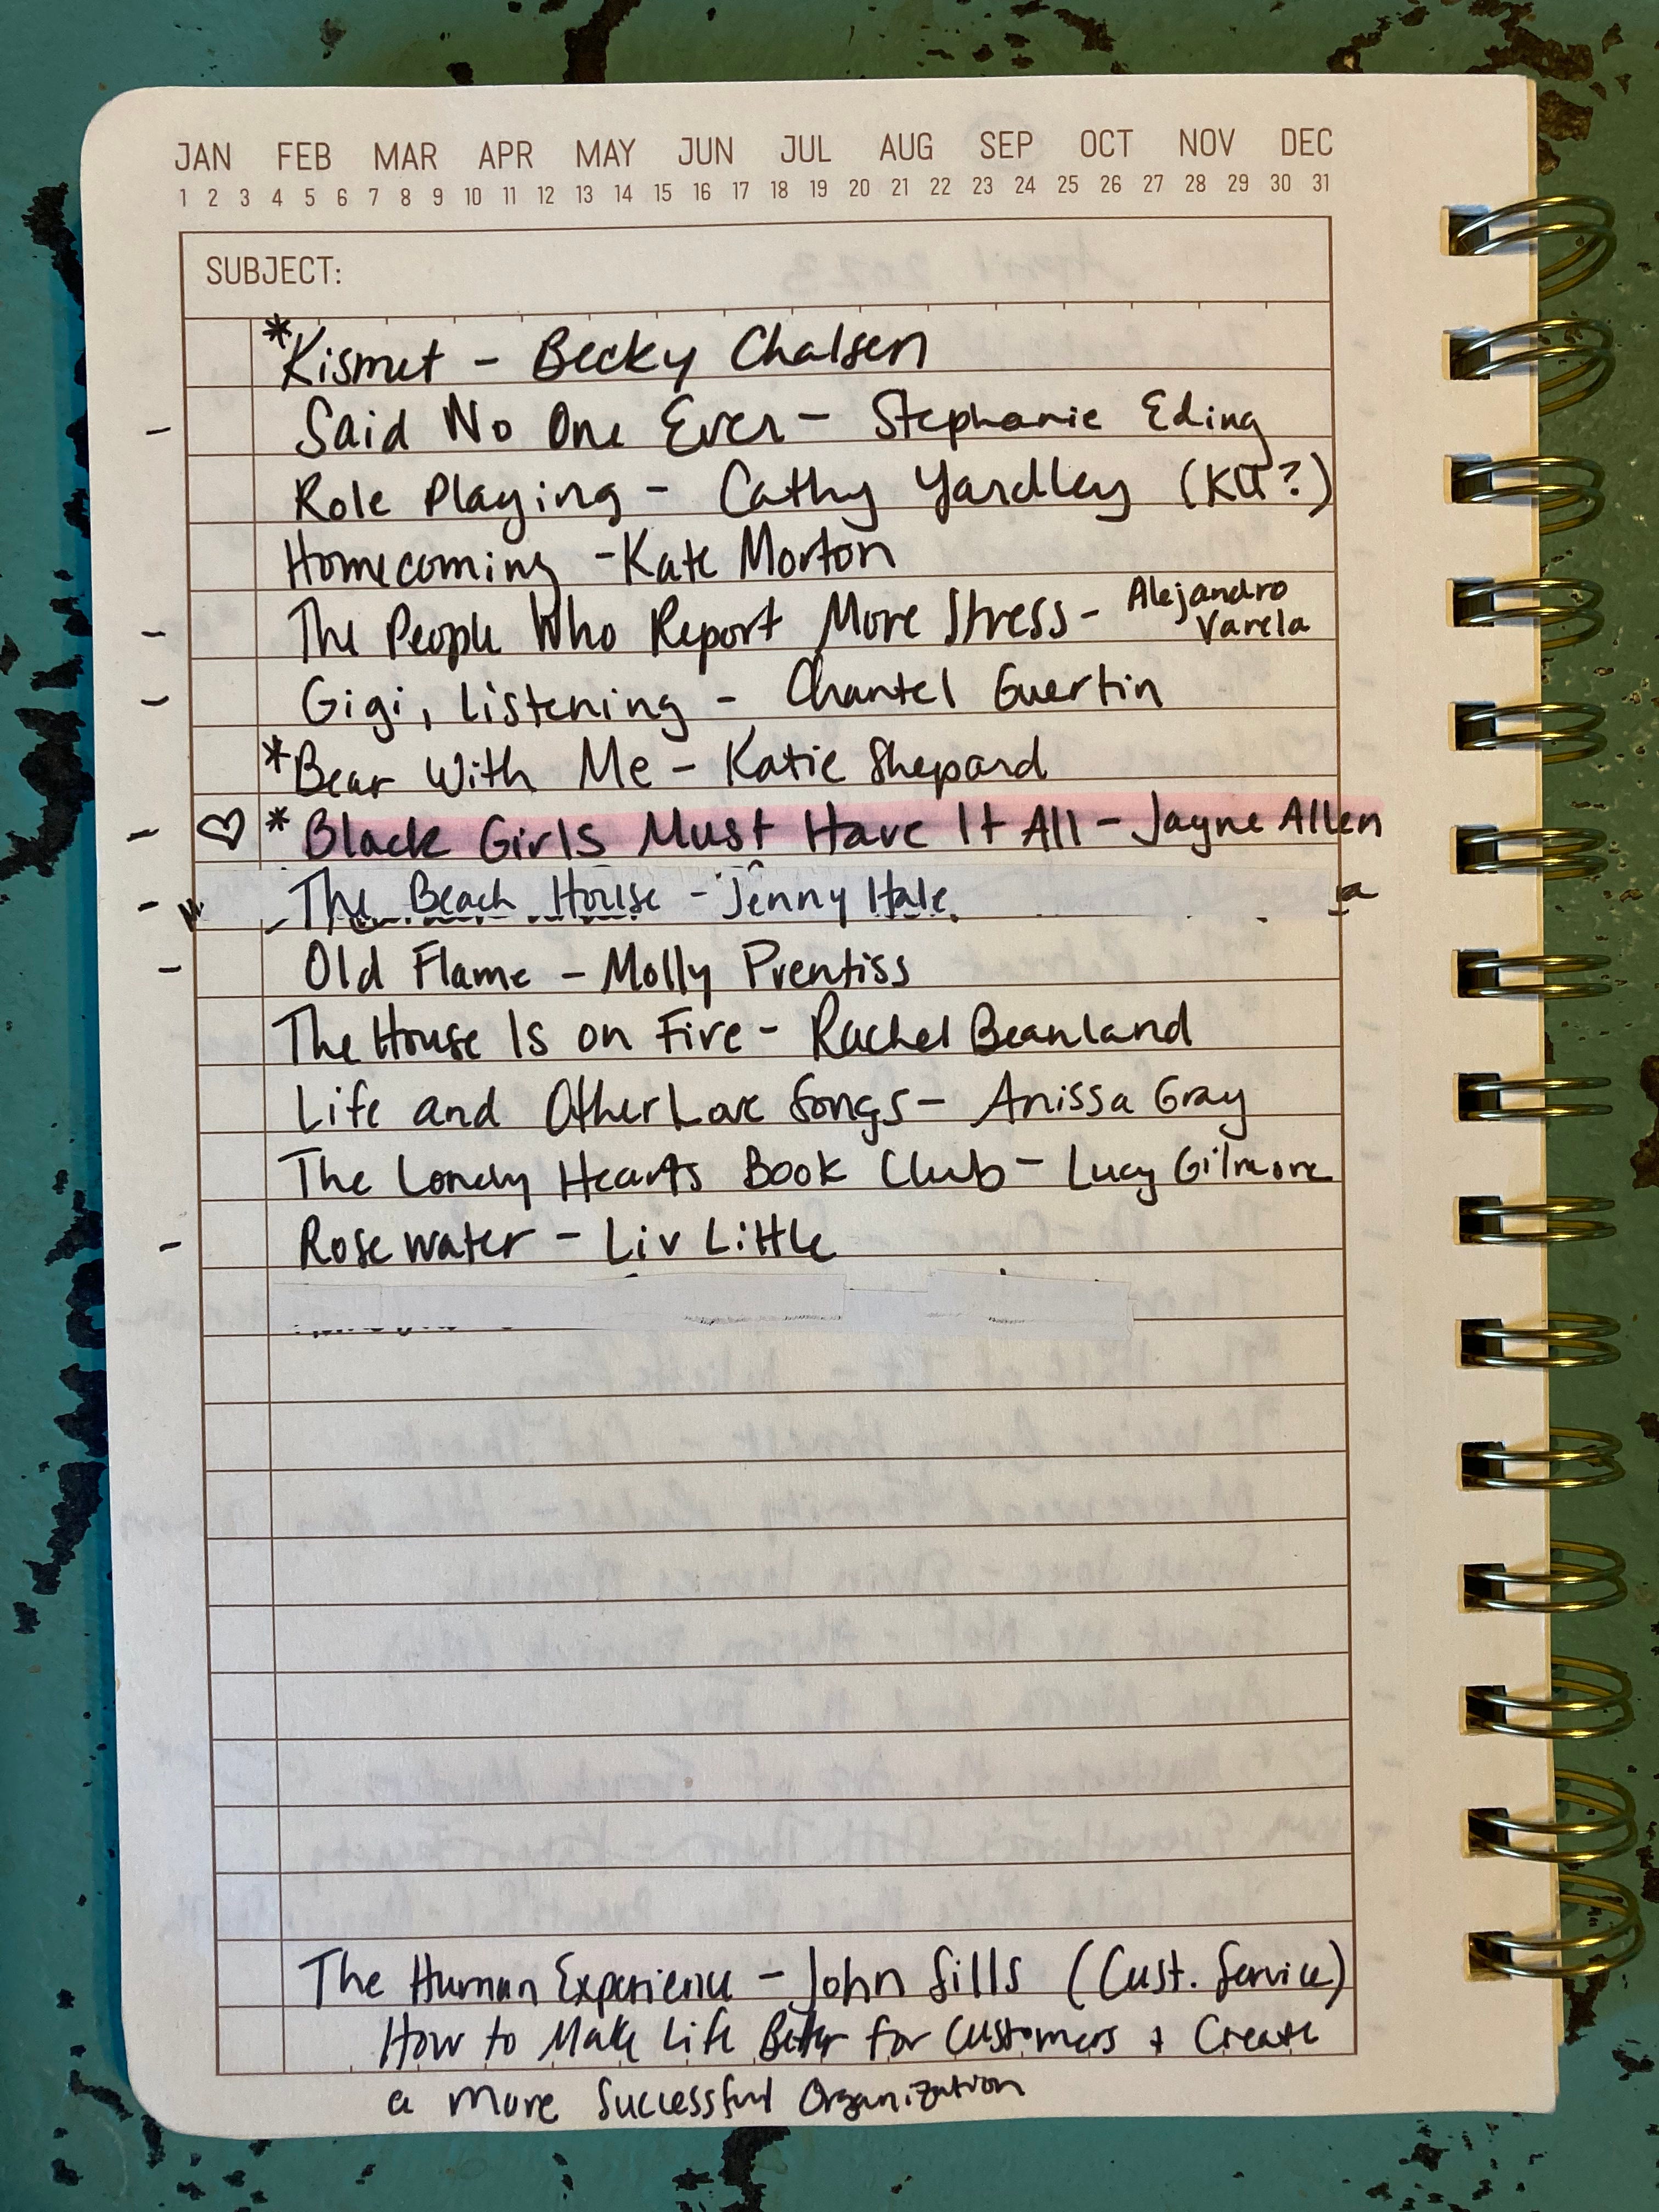 JAN FEB MAR APR MAY JUN JUL AUG SEP OCT NOV DEC
1 2 3 4 5 6 7 8 9 10 11 12 13 14 15 16 17 18 19 20 21 22 23 24 25 26 27 28 29 30 31
SUBJECT:
*Kismet - Becky Chalsen
- Said No One Ever - Stephanie Eding
Role Playing - Cathy Yardley (KU?)
Homecoming - Kate Morton
- The People Who Report More Stress - Alejandro Varela
- Gigi, Listening - Chantel Guertin
*Bear With Me - Katie Shepard
- ♡ * Black Girls Must Have It All - Jayne Allen
- The Beach House - Jenny Hale
- Old Flame - Molly Prentiss
The House Is on Fire - Rachel Beanland
Life and Other Love Songs - Anissa Gray
The Lonely Hearts Book Club - Lucy Gilmore
- Rosewater - Liv Little
The Human Experience - John Sills (Cust. Service)
How to Make Life Better for Customers + Create
a More Successful Organization